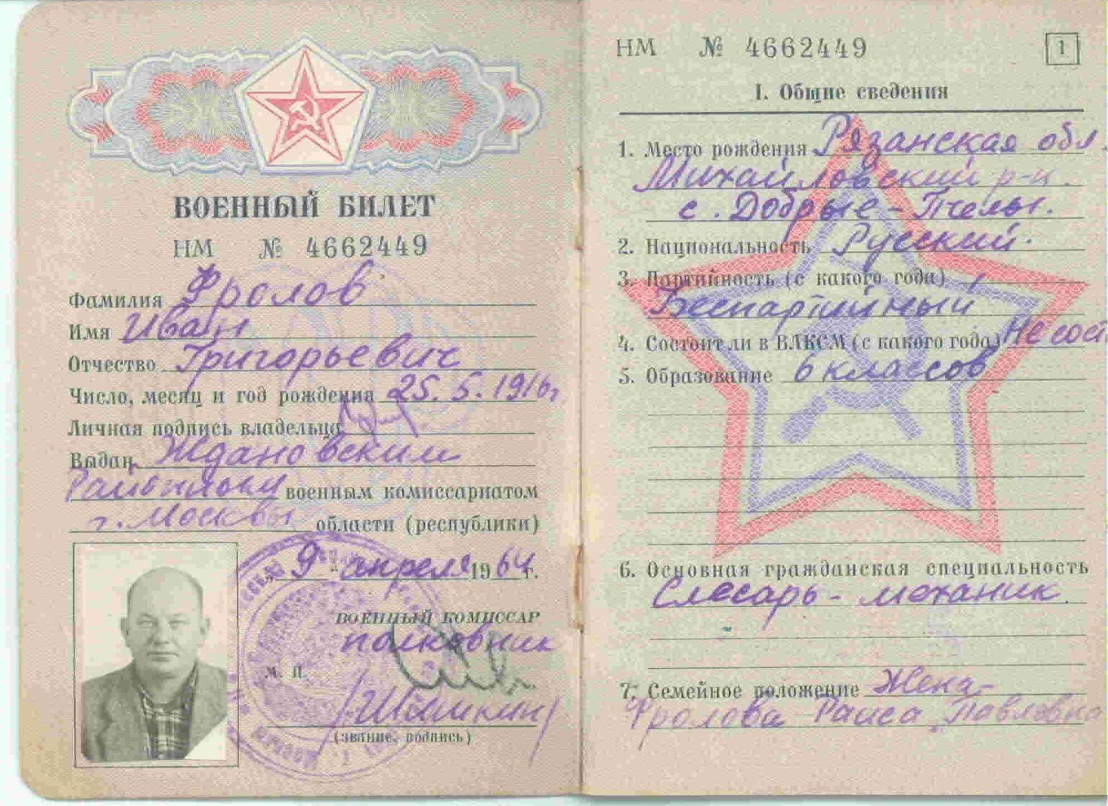 ВОЕННЫЙ БИЛЕТ
НМ № 4662449
Фамилия Фролов
Имя Иван
Отчество Григорьевич
Число, месяц и год рождения 25. 5. 1916г
Личная подпись владельца
Выдан Ждановским
Районным военным комиссариатом
г. Москвы области (республики)
"9" апреля 1964 г.
ВОЕННЫЙ КОМИССАР
полковник
М. П.
(звание, подпись)
НМ № 4662449
1
I. Общие сведения
1. Место рождения Рязанская обл.
Михайловский р-н.
с. Добрые-Пчелы.
2. Национальность Русский.
3. Партийность (с какого года)
Беспартийный
4. Состоит ли в ВЛКСМ (с какого года) Не сост
5. Образование 6 классов
6. Основная гражданская специальность
Слесарь-механик
7. Семейное положение Жена-
Фролова Раиса Павловна